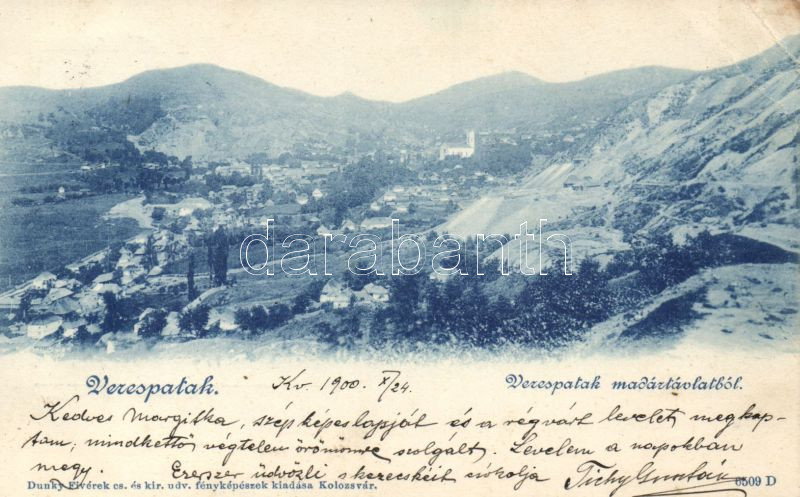 darabanth
Verespatak.
Kv. 1900. X/24.
Verespatak madártávlatból.
Kedves Margitka, szép képeslapját és a régvárt levelet megkap-
tam; mindkettő végtelen örömömre szolgált. Levelem a napokban
megy. Ezerszer üdvözli s kezecskéit csókolja Tichy
Dunky Fivérek cs. és kir. udv. fényképészek kiadása Kolozsvár.
6509 D